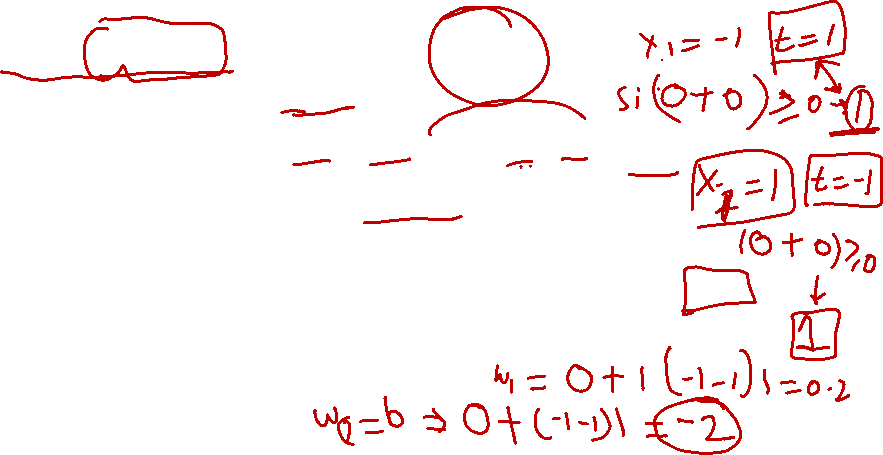 x1 = -1 t = 1
si(0+0) ≥ 0 → 1
= 1 t = -1
(0+0) ≥ 0
↓
1
w1 = 0 + 1 (-1-1) 1 = 0.2
w0 = b ⇒ 0 + (-1-1) 1 = -2